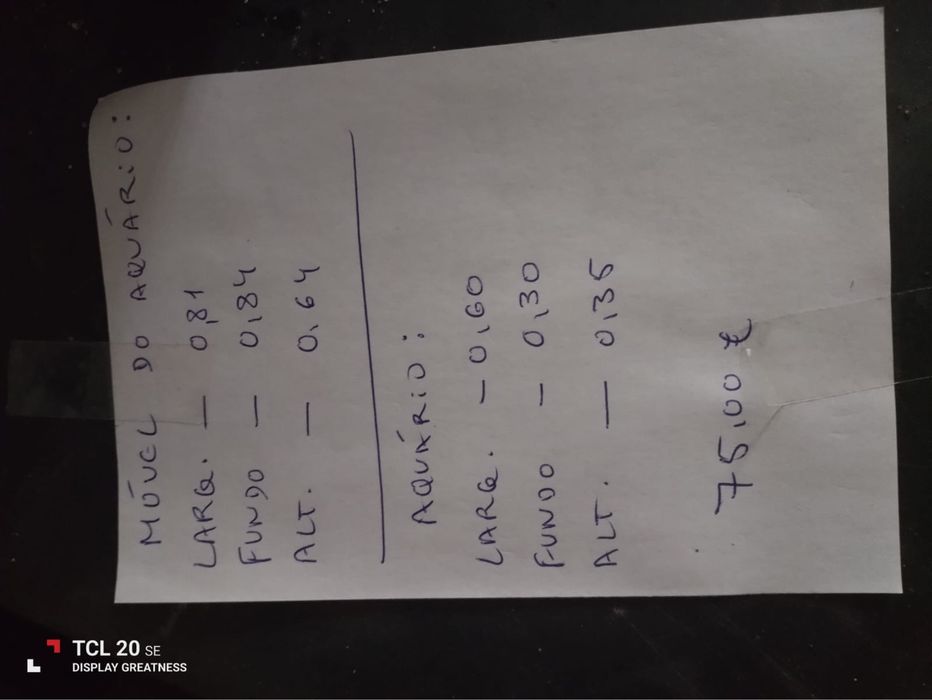 MÓVEL DO AQUÁRIO:
LARG. — 0,81
FUNDO — 0,84
ALT. — 0,64
AQUÁRIO:
LARG. — 0,60
FUNDO — 0,30
ALT. — 0,35
75,00 €
TCL 20 SE
DISPLAY GREATNESS